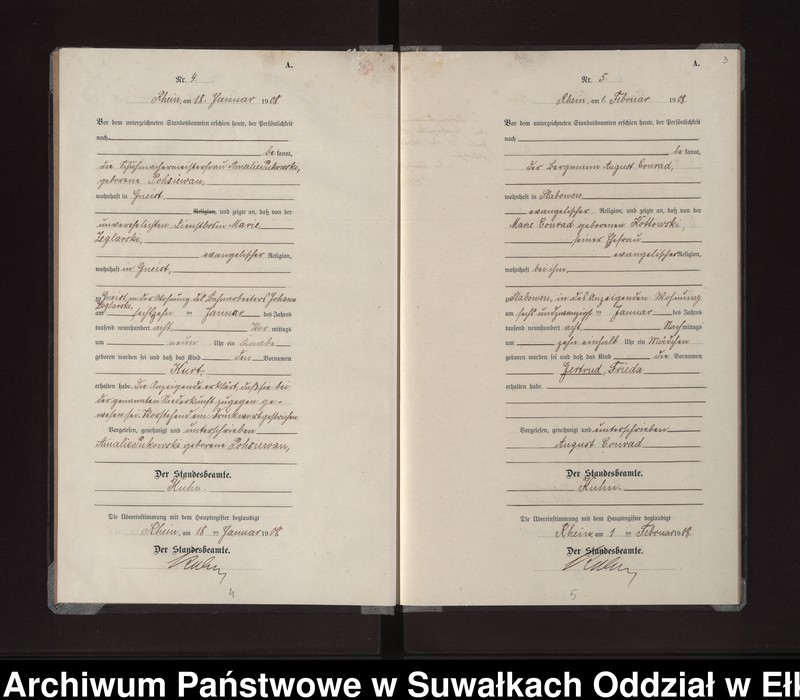 A.
Nr. 4.
Rhein, am 18. Januar 1908.
Vor dem unterzeichneten Standesbeamten erschien heute, der Persönlichkeit
nach
be kannt,
die Schuhmachermeisterfrau Amalie Sukowski,
geborene
wohnhaft in Gneist,
Religion, und zeigte an, daß von der
unverehelichten Dienstbotin Marie
Zeglarski,
evangelischer Religion,
wohnhaft in Gneist,
in Gneist, in der Wohnung des Bahnarbeiters Johann
Zeglarski,
am sechzehn ten Januar des Jahres
tausend neunhundert acht Vor mittags
um neun Uhr ein Knabe
geboren worden sei und daß das Kind den Vornamen
Kurt
erhalten habe. Die Anzeigende erklärt, daß sie bei
der genannten Niederkunft zugegen ge-
wesen sei. Vorstehend ein Druckwort gestrichen.
Vorgelesen, genehmigt und unterschrieben
Amalie Sukowski geborene
Der Standesbeamte.
Kuhn.
Die Übereinstimmung mit dem Hauptregister beglaubigt
Rhein, am 18 ten Januar 1908
Der Standesbeamte.
Kuhn
4
A.
3
Nr. 5.
Rhein, am 1. Februar 1908.
Vor dem unterzeichneten Standesbeamten erschien heute, der Persönlichkeit
nach
be kannt,
der Bergmann August Conrad,
wohnhaft in Slabowen,
evangelischer Religion, und zeigte an, daß von der
Marie Conrad geborenen Kottowski,
seiner Ehefrau
evangelischer Religion,
wohnhaft bei ihm,
zu Slabowen, in des Anzeigenden Wohnung
am sechs und zwanzigsten Januar des Jahres
tausend neunhundert acht Nach mittags
um zehn einhalb Uhr ein Mädchen
geboren worden sei und daß das Kind die Vornamen
Gertrud, Frieda
erhalten habe.
Vorgelesen, genehmigt und unterschrieben
August Conrad
Der Standesbeamte.
Kuhn.
Die Übereinstimmung mit dem Hauptregister beglaubigt
Rhein, am 1 ten Februar 1908.
Der Standesbeamte.
Kuhn
5
Archiwum Państwowe w Suwałkach Oddział w Eł